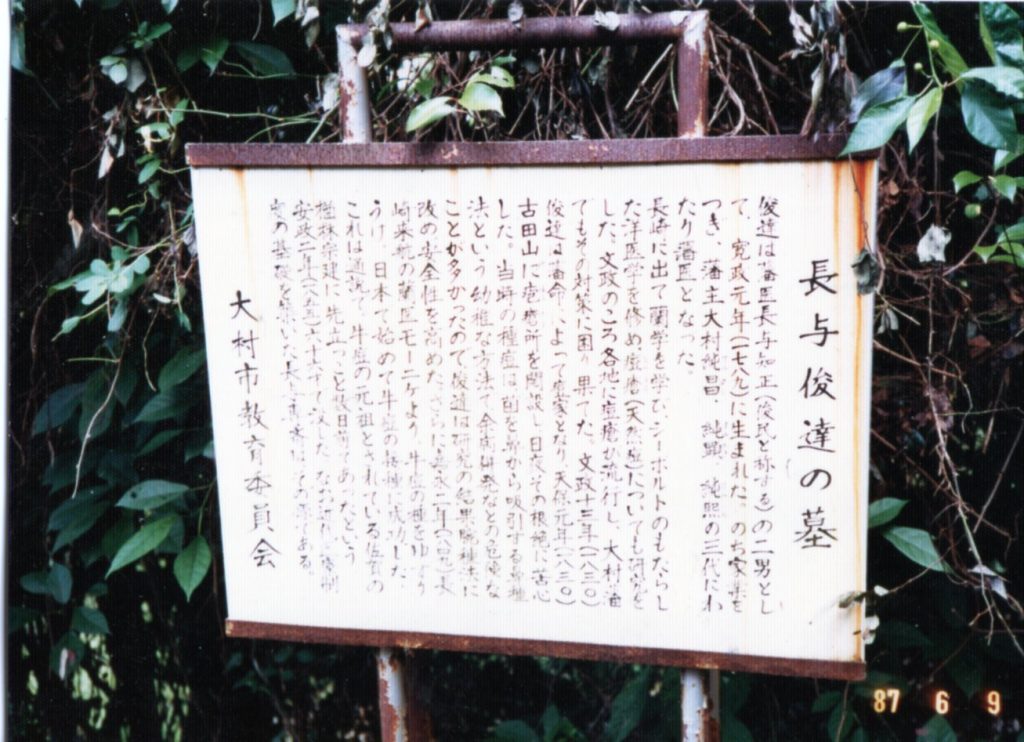 長与俊達の墓
俊達は藩医長与知正(俊民と称する)の二男とし
て、寛政元年(一七八九)に生まれた。のち家業を
つぎ、藩主大村純昌、純顕、純熙の三代にわ
たり藩医となった。
長崎に出て蘭学を学び、シーボルトのもたらし
た洋医学を修め疱瘡(天然痘)についても研究を
した。文政のころ各地に疱瘡が流行し、大村藩
でもその対策に困り果てた。文政十三年(一八三〇)
俊達は藩命によって痘家となり、天保元年(一八三〇)
古田山に疱瘡所を開設し日夜その根絶に苦心
した。当時の種痘は菌を鼻から吸引する鼻種
法という幼稚な方法で余病併発などの危険な
ことが多かったので俊達は研究の結果腕種法に
改め安全性を高めた。さらに嘉永二年(一八四九)長
崎来航の蘭医モーニケより、牛痘の種をゆずり
うけ、日本で始めて牛痘の接種に成功した。
これは通説で、牛痘の元祖とされている佐賀の
楢林宗建に先立つこと数日前であったという
安政二年(一八五五)六十六才で没した。なお
の基礎を築いた長与専斎はその孫である。
大村市教育委員会
87 6 9